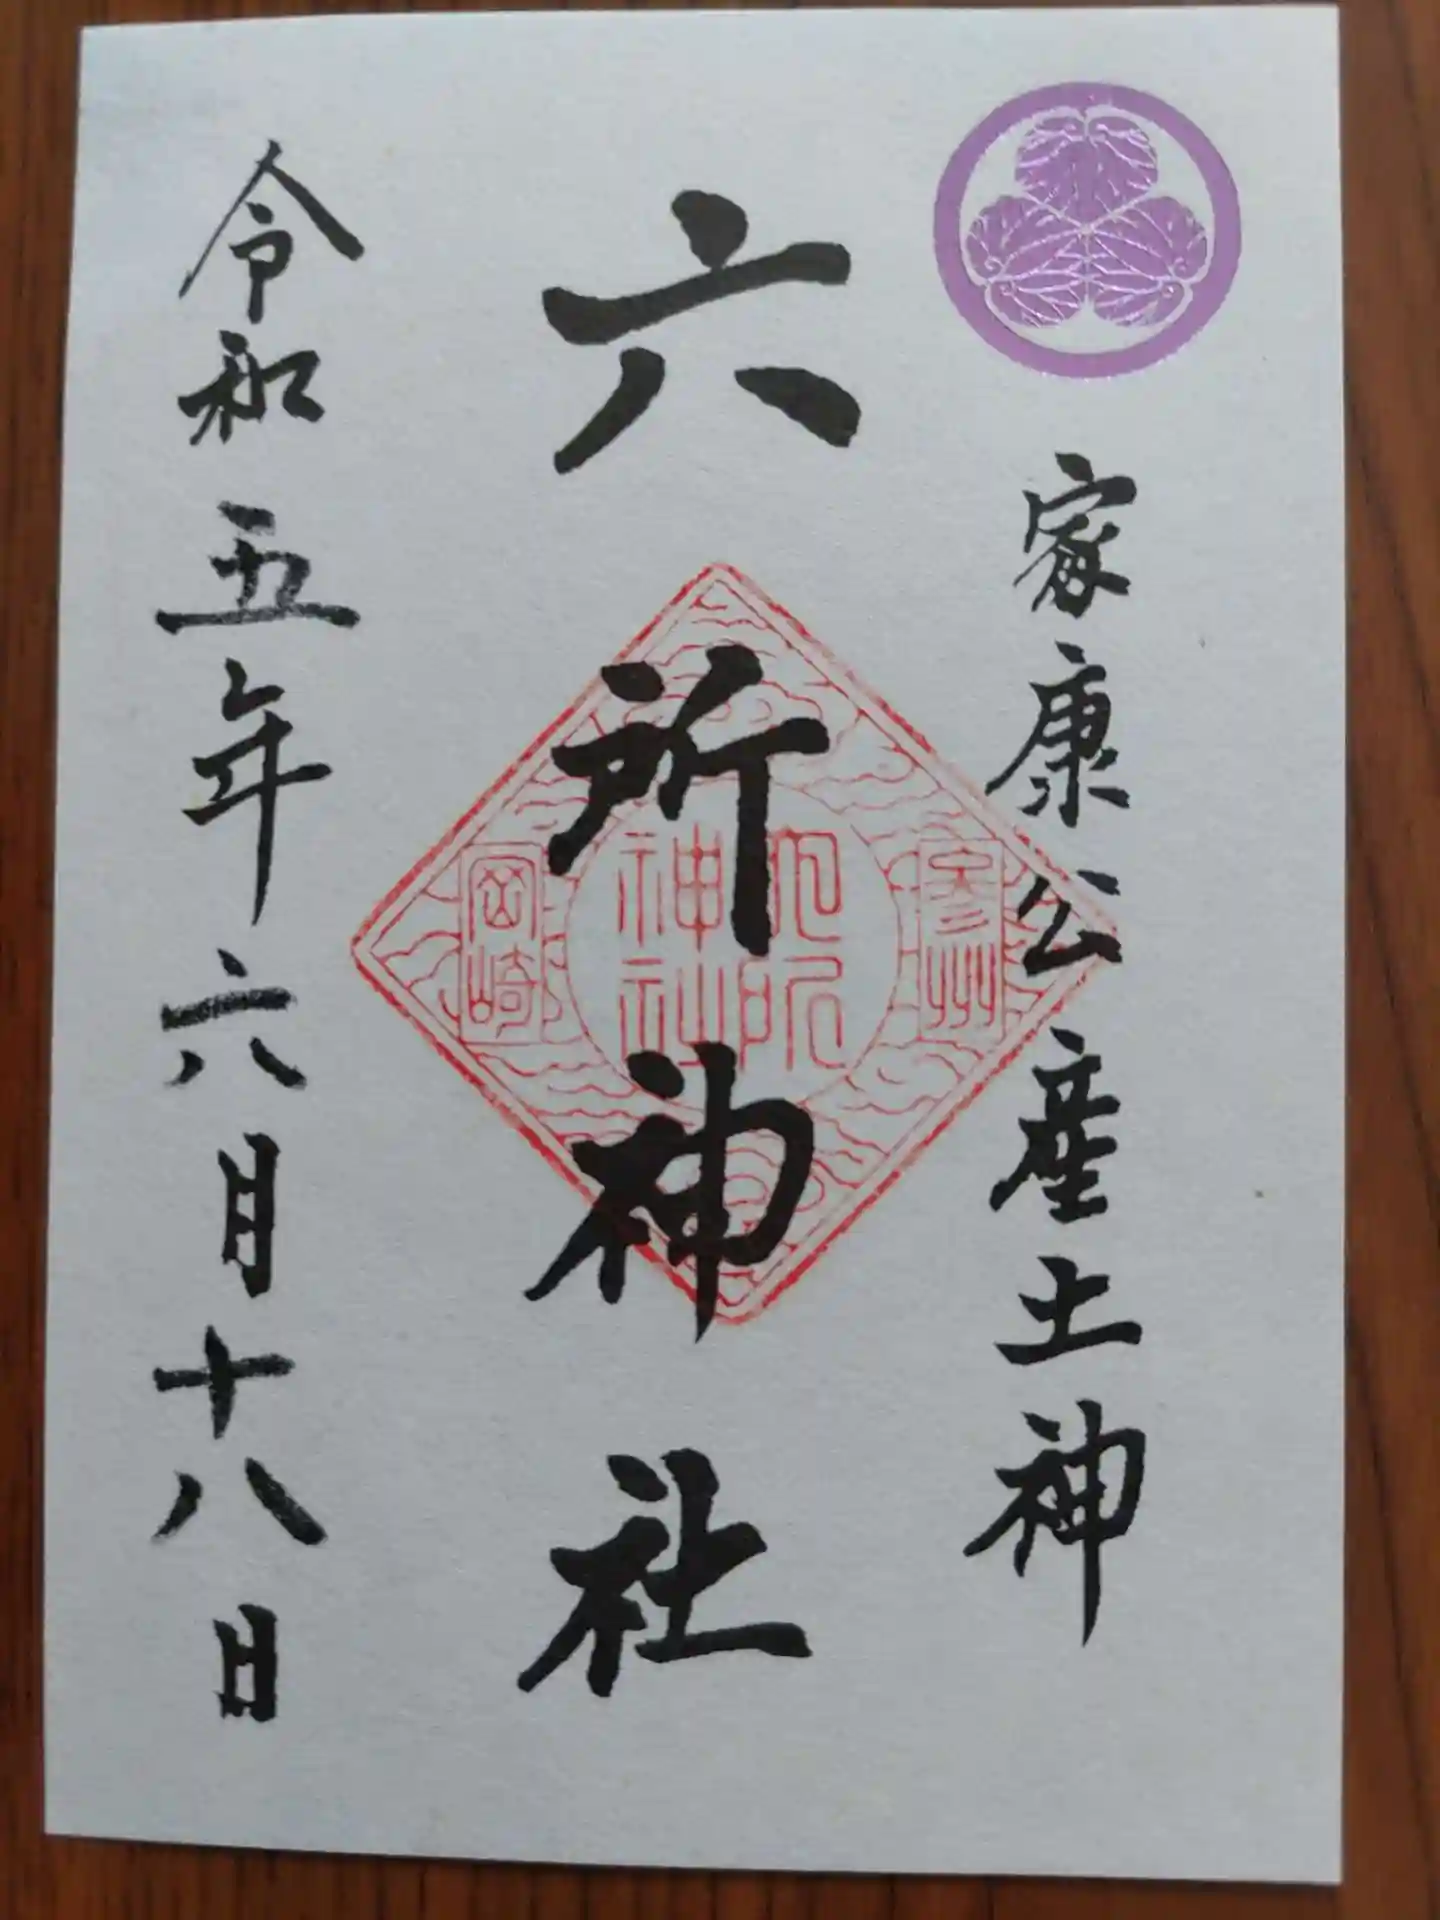 家康公産土神
六所神社
参州
六所
神社
岡崎
令和五年六月十八日